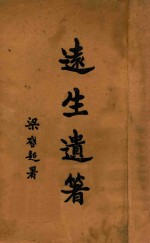 遠生遺著
梁啓超署